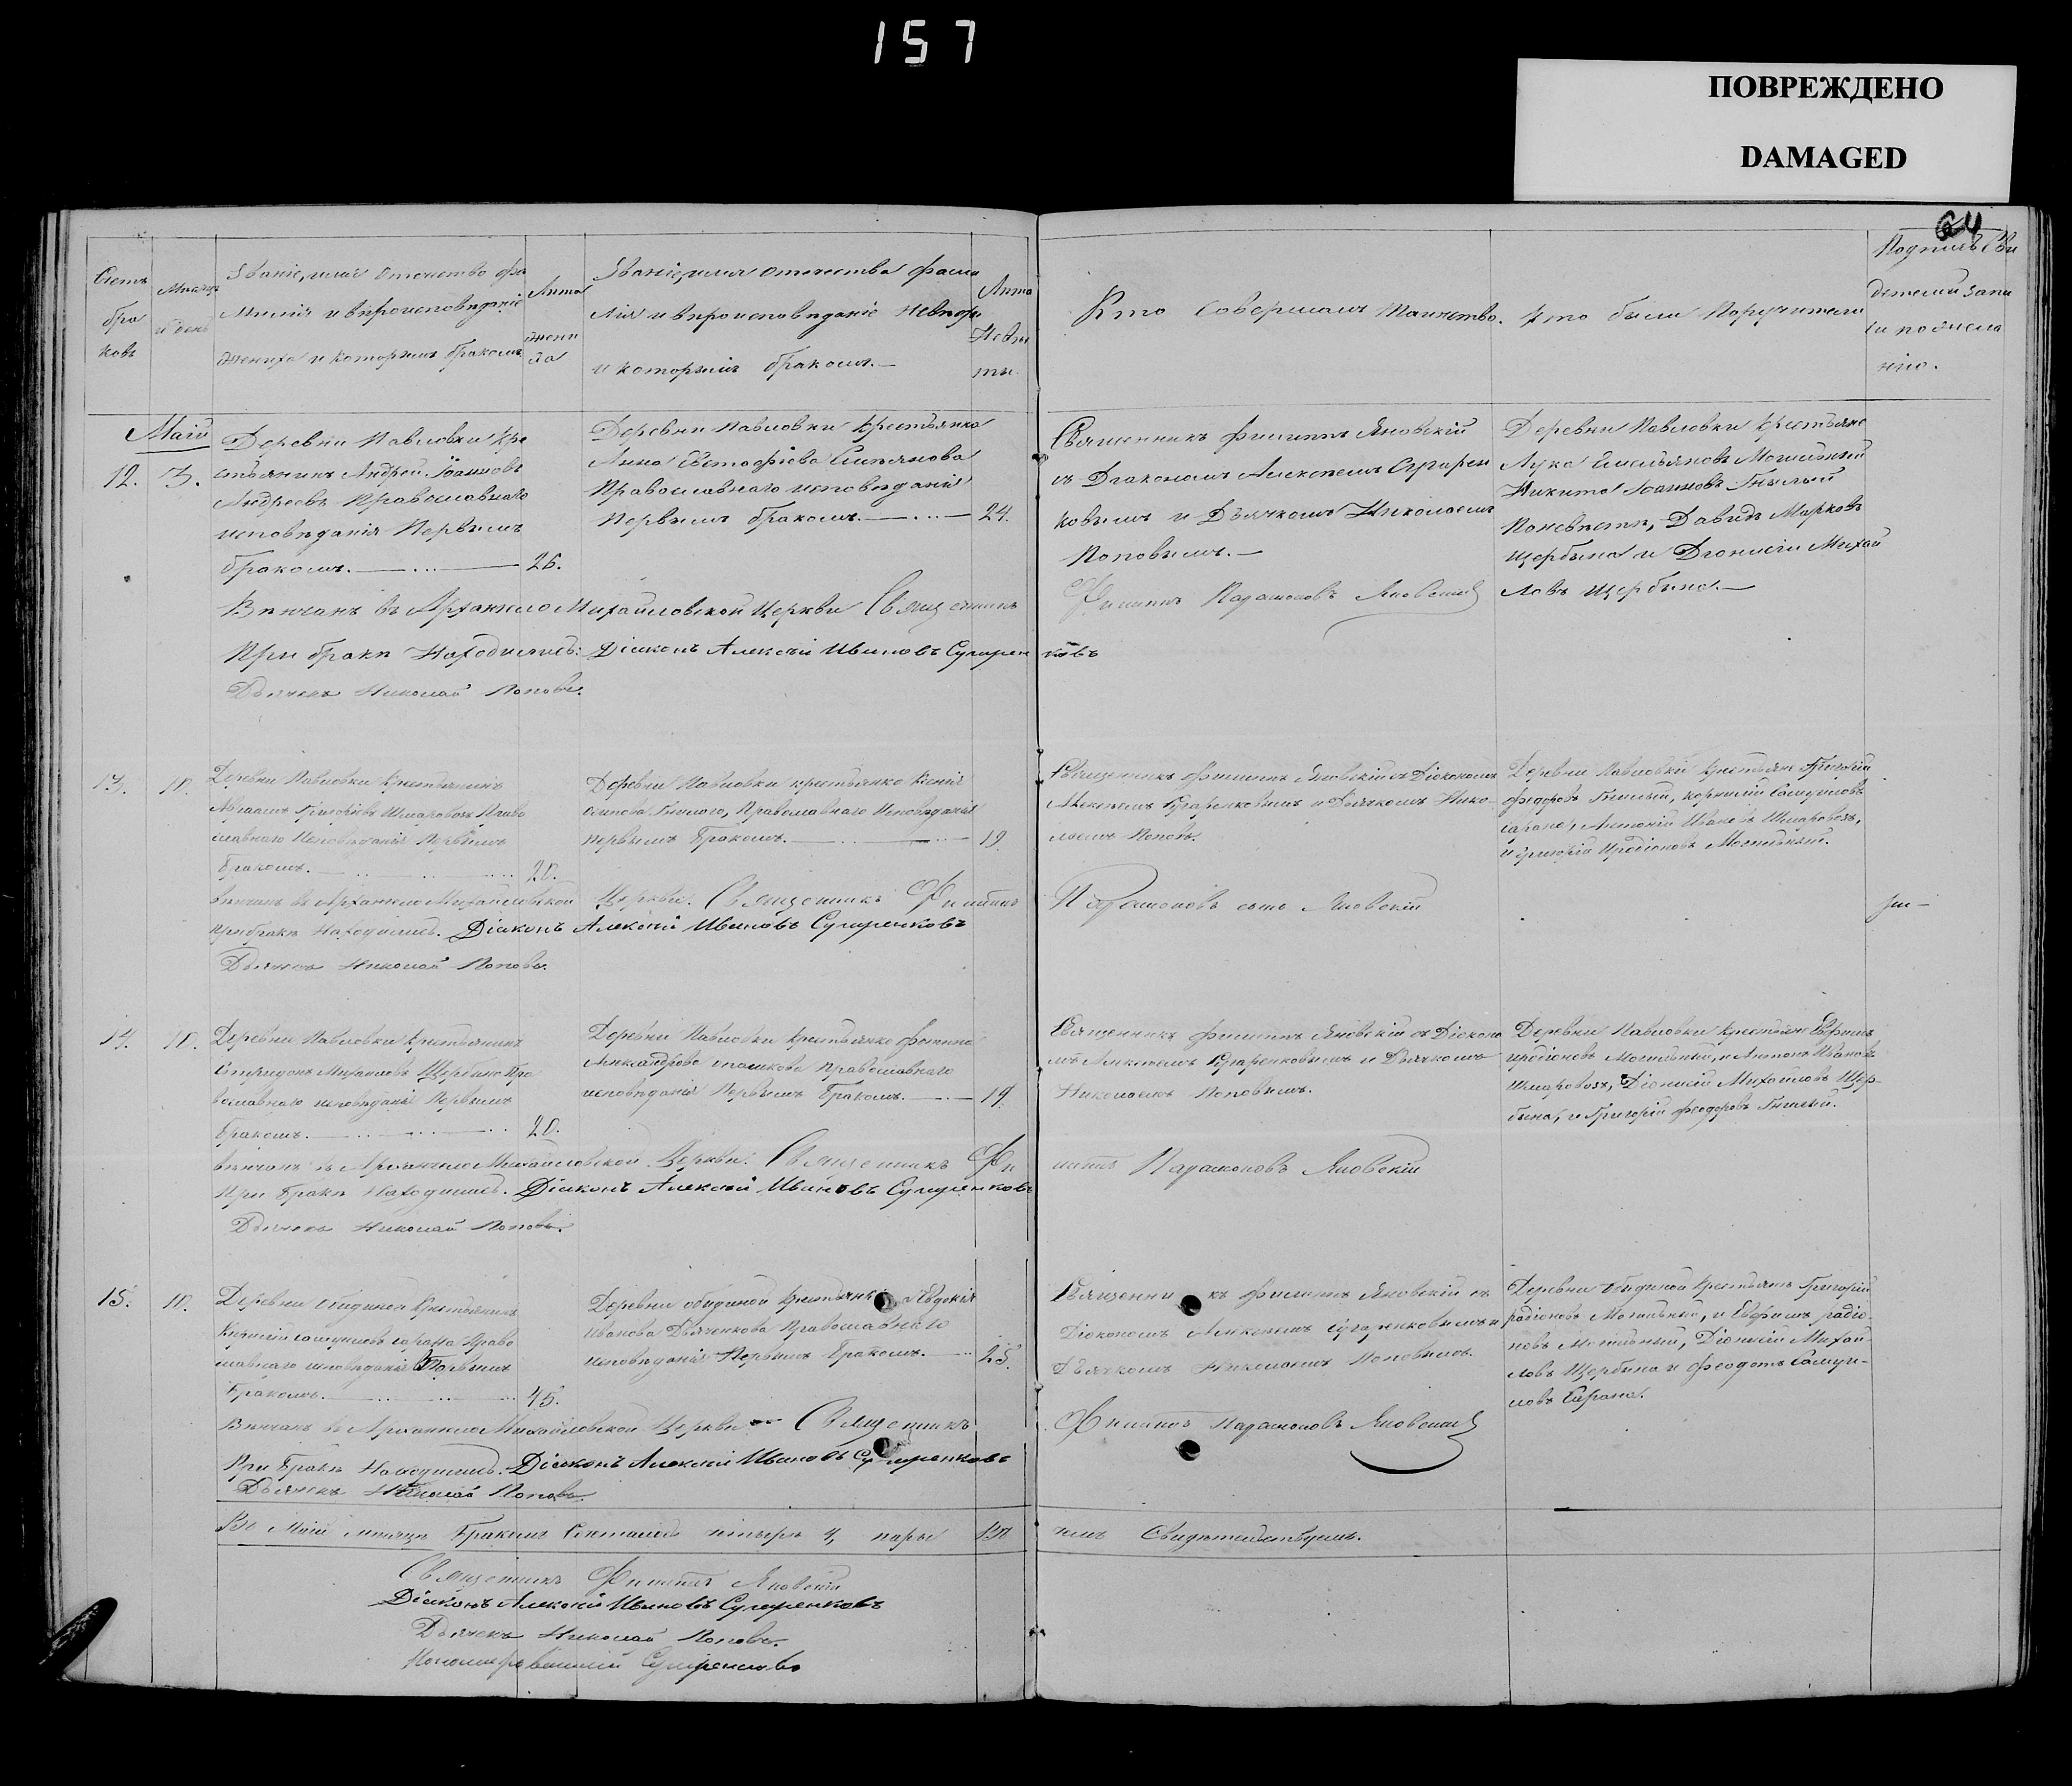 157
ПОВРЕЖДЕНО
DAMAGED
64
Счетъ
бра
ковъ
Мѣсяцъ
и день
Званіе, имя отечество фа
милія и вѣроисповѣданіе
жениха и которымъ бракомъ
Лѣта
жени
ха
Званіе, имя отечество фами
лія и вѣроисповѣданіе Невѣсты
и которымъ бракомъ.—
Лѣта
Невѣс
ты.
Кто Совершалъ Таинство.
Кто были Поручители
Подпись Сви
дѣтелей запи
си по жела
нію.
Маій
12.
3.
Деревни Павловки кре
стьянинъ Андрей Іоанновъ
Андреевъ Православнаго
исповѣданія Первымъ
бракомъ.
26.
Деревни Павловки крестьянка
Анна
Православнаго исповѣданія
Первымъ бракомъ.
24.
Священникъ Филиппъ Яновскій
съ Діакономъ Алексѣемъ Сугарен
ковымъ и Дьячкомъ Николаемъ
Поповымъ.—
Деревни Павловки крестьяне
Лука Емельяновъ Могильный
Никита Іоанновъ Гнылый
Давидъ Марковъ
Щербина и Діонисій Михай
ловъ Щербина.—
Вѣнчанъ въ Архангело Михайловской Церкви Священникъ
Филиппъ Парамоновъ Яновскій
При бракѣ Находились: Діаконъ Алексій Ивановъ Сугаренковъ
Дьячекъ Николай Поповъ.
13.
10.
Деревни Павловки Крестьянинъ
Григорьевъ Право
славнаго Исповѣданія Первымъ
Бракомъ.
20.
Деревни Павловки крестьянка Ксенія
Осипова Гнылого, Православнаго Исповѣданія
первымъ Бракомъ.
19.
Священникъ Филиппъ Яновскій съ Діакономъ
Алексѣемъ Сугаренковымъ и Дьячкомъ Нико-
лаемъ Поповъ.
Деревни Павловки крестьяне Григорій
Федоровъ Гнылый, Самуиловъ
Антоній Ивановъ
и Григорій Иродіоновъ Могильный.
Вѣнчанъ въ Архангело Михайловской Церкви. Священникъ Филиппъ
Парамоновъ сынъ Яновскій
при бракѣ Находились. Діаконъ Алексій Ивановъ Сугаренковъ
Дьячекъ Николай Поповъ.
14.
10.
Деревни Павловки Крестьянинъ
Спиридонъ Михайловъ Щербина Пра
вославнаго исповѣданія Первымъ
Бракомъ.
20.
Деревни Павловки Крестьянка
Александрова Православнаго
исповѣданія Первымъ Бракомъ.
19.
Священникъ Филиппъ Яновскій съ Діаконо
мъ Алексѣемъ Сугаренковымъ и Дьячкомъ
Николаемъ Поповымъ.
Деревни Павловки крестьяне Ефимъ
Иродіоновъ Могильный, и Антонъ Ивановъ
Діонисій Михайловъ Щер-
бина, и Григорій Феодоровъ Гнылый.
вѣнчанъ въ Архангело Михайловской Церкви. Священникъ Фи
липпъ Парамоновъ Яновскій
При Бракѣ Находились. Діаконъ Алексій Ивановъ Сугаренковъ
Дьячекъ Николай Поповъ.
15.
10.
Деревни Обидиной Крестьянинъ
Самуиловъ Право
славнаго исповѣданія Первымъ
Бракомъ.
45.
Деревни Обидиной Крестьянка Евдокія
Иванова Дьяченкова Православнаго
исповѣданія Первымъ Бракомъ.
25.
Священникъ Филиппъ Яновскій съ
Діакономъ Алексѣемъ Сугаренковымъ и
Дьячкомъ Николаемъ Поповымъ.
Деревни Обидиной Крестьяне Григорій
Родіоновъ Могильный, и Ефимъ Родіо
новъ Могильный, Діонисій Михай
ловъ Щербина и Феодотъ Самуи-
ловъ
Вѣнчанъ въ Архангело Михайловской Церкви Священникъ
Филиппъ Парамоновъ Яновскій
При Бракѣ Находились. Діаконъ Алексій Ивановъ Сугаренковъ
Дьячекъ Николай Поповъ.
Въ Маіи мѣсяцѣ Бракомъ Сочетались четыре 4, пары Въ
чемъ Свидѣтельствуемъ.
Священникъ Филиппъ Яновскій
Діаконъ Алексій Ивановъ Сугаренковъ
Дьячекъ Николай Поповъ.
Пономарь Сугаренковъ